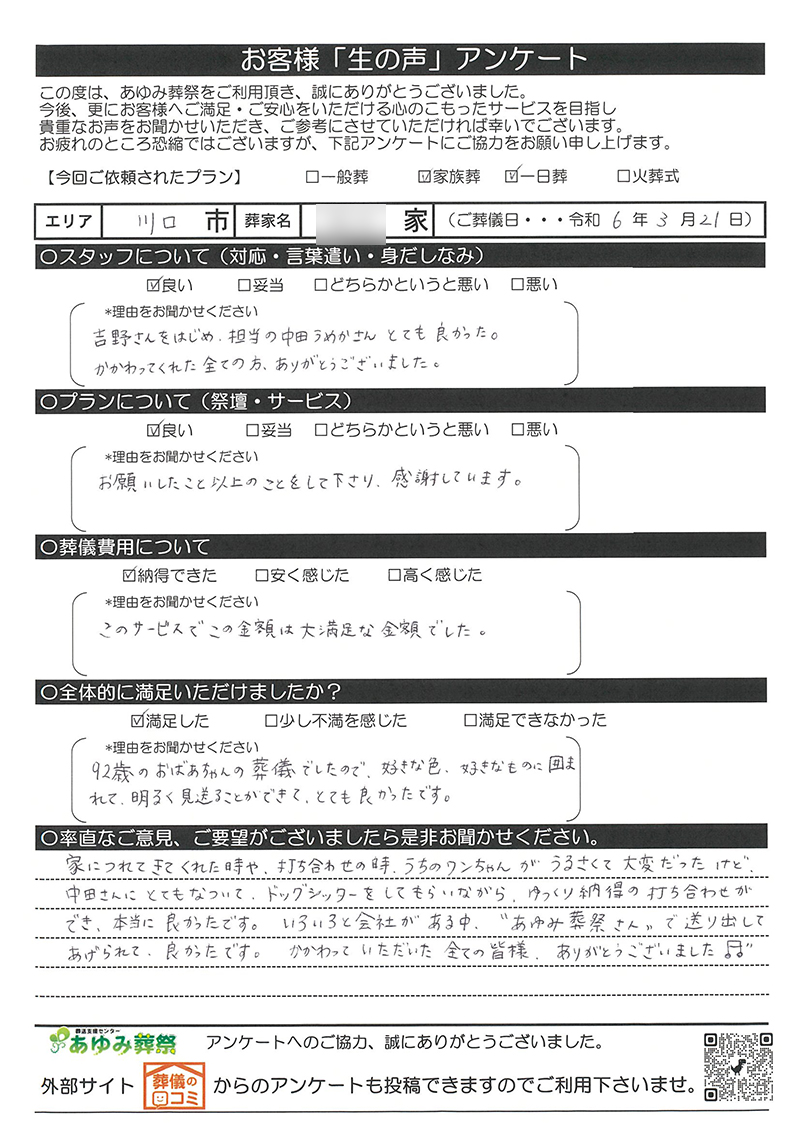 お客様「生の声」アンケート
この度は、あゆみ葬祭をご利用頂き、誠にありがとうございました。
今後、更にお客様へご満足・ご安心をいただける心のこもったサービスを目指し
貴重なお声をお聞かせいただき、ご参考にさせていただければ幸いでございます。
お疲れのところ恐縮ではございますが、下記アンケートにご協力をお願い申し上げます。
【今回ご依頼されたプラン】 □一般葬 ☑家族葬 ☑一日葬 □火葬式
エリア 川口 市 葬家名 家 (ご葬儀日・・・令和 6 年 3 月 21 日)
〇スタッフについて(対応・言葉遣い・身だしなみ)
☑良い □妥当 □どちらかというと悪い □悪い
*理由をお聞かせください
吉野さんをはじめ、担当の中田うめかさん とても 良かった。
かかわってくれた 全ての方、ありがとうございました。
〇プランについて(祭壇・サービス)
☑良い □妥当 □どちらかというと悪い □悪い
*理由をお聞かせください
お願いしたこと以上のことをして下さり、感謝しています。
〇葬儀費用について
☑納得できた □安く感じた □高く感じた
*理由をお聞かせください
このサービスでこの金額は大満足な金額でした。
〇全体的に満足いただけましたか？
☑満足した □少し不満を感じた □満足できなかった
*理由をお聞かせください
92歳のおばあちゃんの葬儀でしたので、好きな色、好きなものに囲ま
れて、明るく見送ることができて、とても良かったです。
〇率直なご意見、ご要望がございましたら是非お聞かせください。
家につれてきてくれた時や、打ち合わせの時、うちのワンちゃんがうるさくて大変だったけど、
中田さんにとてもなついて、ドッグシッターをしてもらいながら、ゆっくり納得の打ち合わせが
でき、本当に良かったです。 いろいろと会社がある中、"あゆみ葬祭さん"で送り出して
あげられて、良かったです。 かかわっていただいた全ての皆様、ありがとうございました♫"
葬送支援センター
あゆみ葬祭 アンケートへのご協力、誠にありがとうございました。
外部サイト 葬儀の口コミ からのアンケートも投稿できますのでご利用下さいませ。